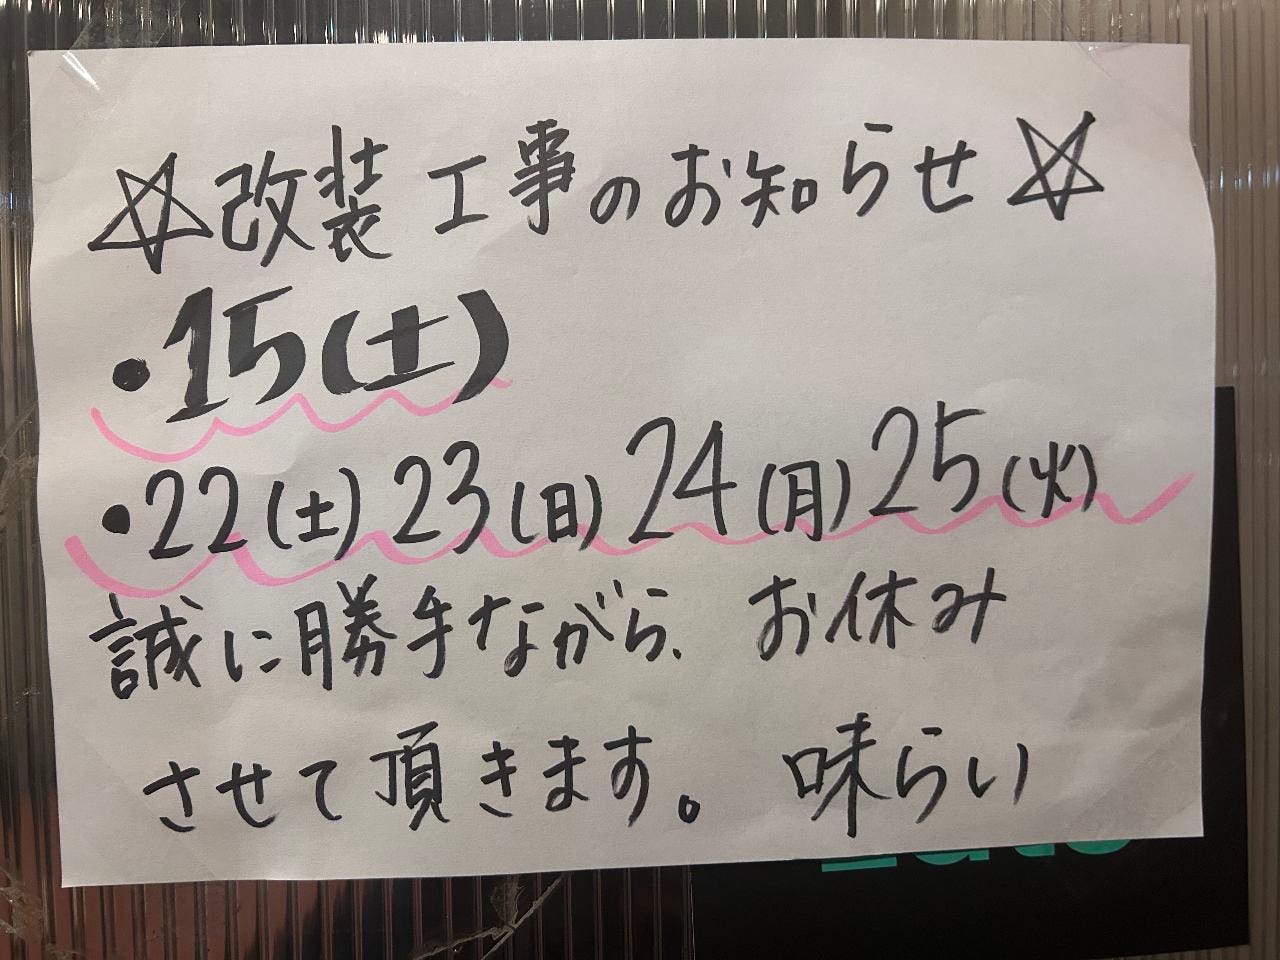 ☆改装工事のお知らせ☆
・15(土)
・22(土)23(日)24(月)25(火)
誠に勝手ながら、お休み
させて頂きます。 味らい